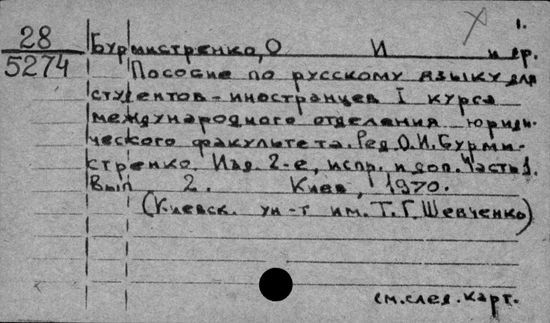 1.
28
5274
Бурмистренко, О И и др.
Пособие по русскому языку для
студентов-иностранцев I курса
международного отделения юриди-
ческого факультета. Ред. О.И. Бурми-
стренко. Изд. 2-е, испр. и доп. Часть 1.
Вып 2. Киев, 1970.
(Киевск. ун-т им. Т.Г. Шевченко)
см. след. карт.